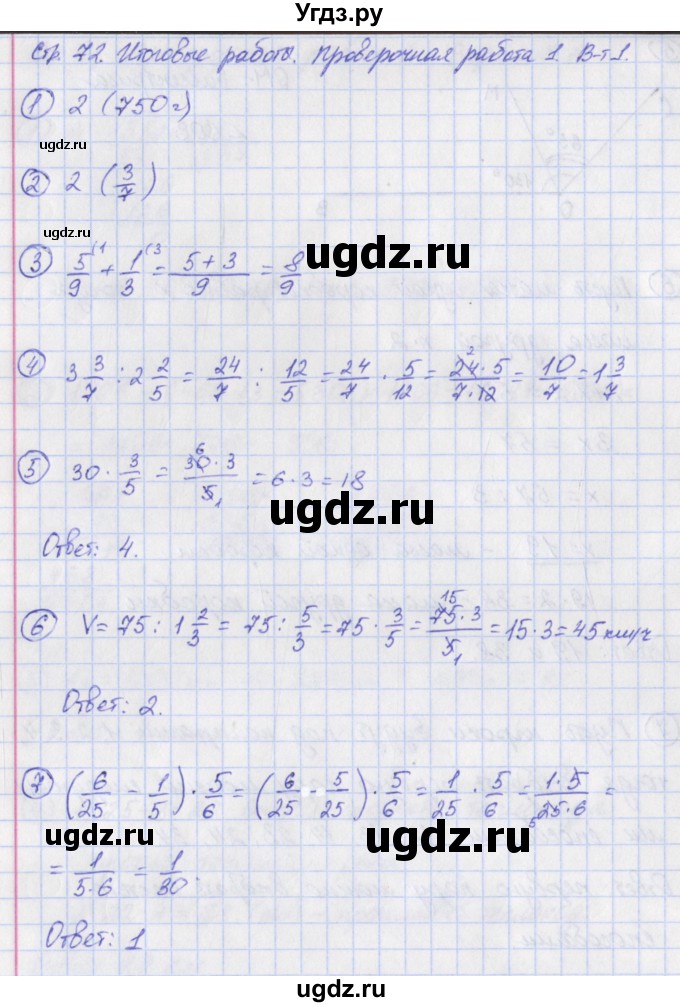 Угдз.ру
Стр. 72. Итоговые работы. Проверочная работа 1. В-т 1.
① 2 (750 г)
ugdz.ru
② 2 (3/7)
ugdz.ru
③ 5/9 (1 + 1/3 (3 = 5+3/9 = 8/9
ugdz.ru
④ 3 3/7 : 2 2/5 = 24/7 : 12/5 = 24/7 · 5/12 = 24 2 · 5/7 · 12 = 10/7 = 1 3/7
⑤ 30 · 3/5 = 30 6 · 3/5 1 = 6 · 3 = 18
ugdz.ru
Ответ: 4.
⑥ V = 75 : 1 2/3 = 75 : 5/3 = 75 · 3/5 = 75 15 · 3/5 1 = 15 · 3 = 45 км/ч
Ответ: 2.
⑦ (6/25 - 1/5) · 5/6 = (6/25 5/25) · 5/6 = 1/25 · 5/6 = 1 · 5/25 5 · 6 =
ugdz.ru
ugdz.ru
= 1/5·6 = 1/30.
Ответ: 1
ugdz.ru
ugdz.ru